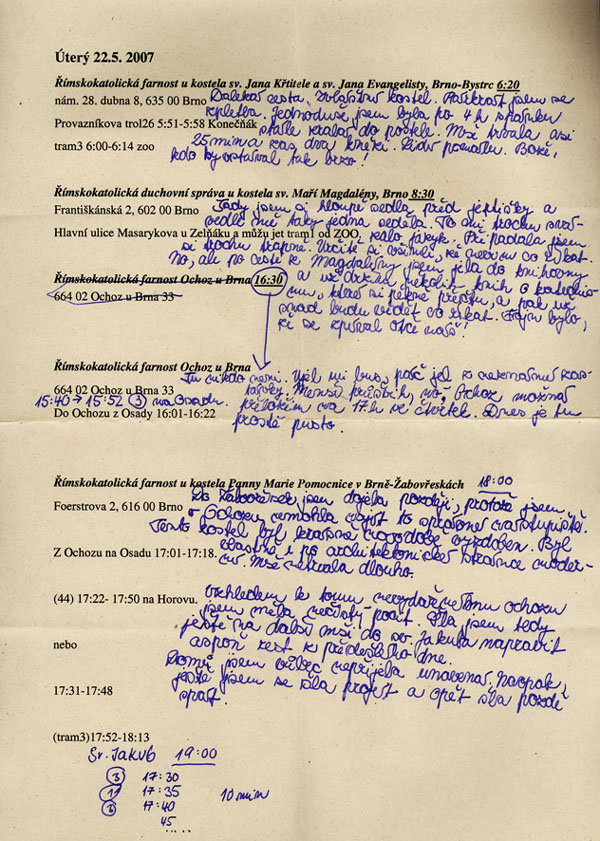 Úterý 22.5. 2007
Římskokatolická farnost u kostela sv. Jana Křtitele a sv. Jana Evangelisty, Brno-Bystrc 6:20
nám. 28. dubna 8, 635 00 Brno Daleká cesta, zvláštní kostel. Párkrát jsem se
spletla. Jednoduše jsem byla po 4 h spánku
Provazníkova trol26 5:51-5:58 Konečňák stále
do postele. Mše trvala asi
tram3 6:00-6:14 zoo 25 min a zas dva kněží. Lidí pomálu. Bože,
kdo by vstával tak brzo!
Římskokatolická duchovní správa u kostela sv. Maří Magdalény, Brno 8:30
Františkánská 2, 602 00 Brno Tady jsem si hloupě sedla před jeptišky a
vedle mě taky jedna seděla. To mi trochu
Hlavní ulice Masarykova u Zelňáku a můžu jet tram1 od ZOO. Připadala jsem
si trochu trapně. Určitě si všimli, že nevím co říkat.
No, ale po cestě k Magdalény jsem jela do knihovny
Římskokatolická farnost Ochoz u Brna 16:30 a už držím několik knih o
664 02 Ochoz u Brna 33 které si pěkně přečtu, a pak už
snad budu vědět co říkat. Fajn bylo,
že se zpíval otče náš!
Římskokatolická farnost Ochoz u Brna
Tu nikdo není. Ujel mi bus,
664 02 Ochoz u Brna 33
15:40 → 15:52 (3) na Osadu. na 17h ve čtvrtek. Dnes je tu
Do Ochozu z Osady 16:01-16:22 prostě pusto.
Římskokatolická farnost u kostela Panny Marie Pomocnice v Brně-Žabovřeskách 18:00
Do Žabovřesk jsem dojela později, protože jsem
Foerstrova 2, 616 00 Brno v Ochozu nemohla najít to správné nástupiště.
Tento kostel byl krásně novodobě vyzdoben. Byl
vlastně i po architektonické stránce moder-
Z Ochozu na Osadu 17:01-17:18. ní. Mše netrvala dlouho.
(44) 17:22- 17:50 na Horovu. Vzhledem k tomu nevydařenému Ochozu
jsem měla nečistý pocit. Šla jsem tedy
ještě na další mši do sv. Jakuba napravit
nebo aspoň rest z předešlého dne.
Domů jsem vůbec nepřijela unavená. Naopak,
17:31-17:48 ještě jsem se šla projet a opět šla pozdě
spát.
(tram3)17:52-18:13
Sv. Jakub 19:00
(3) 17:30
17:35 10 min
17:40
45
.....